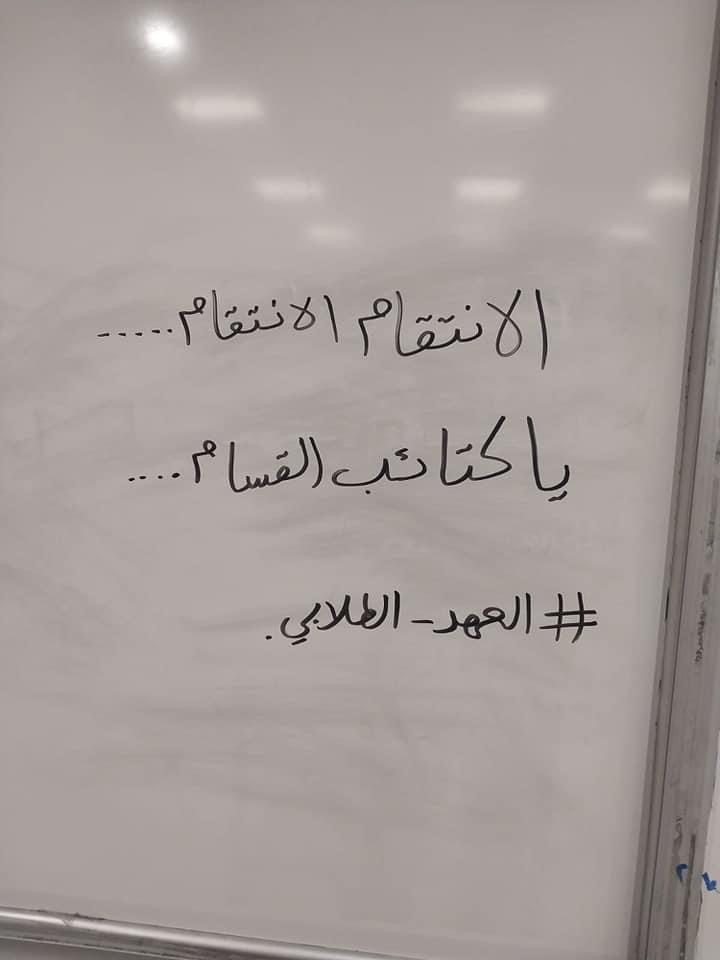 الانتقام الانتقام.....
يا كتائب القسام....
#العهد_الطلابي.